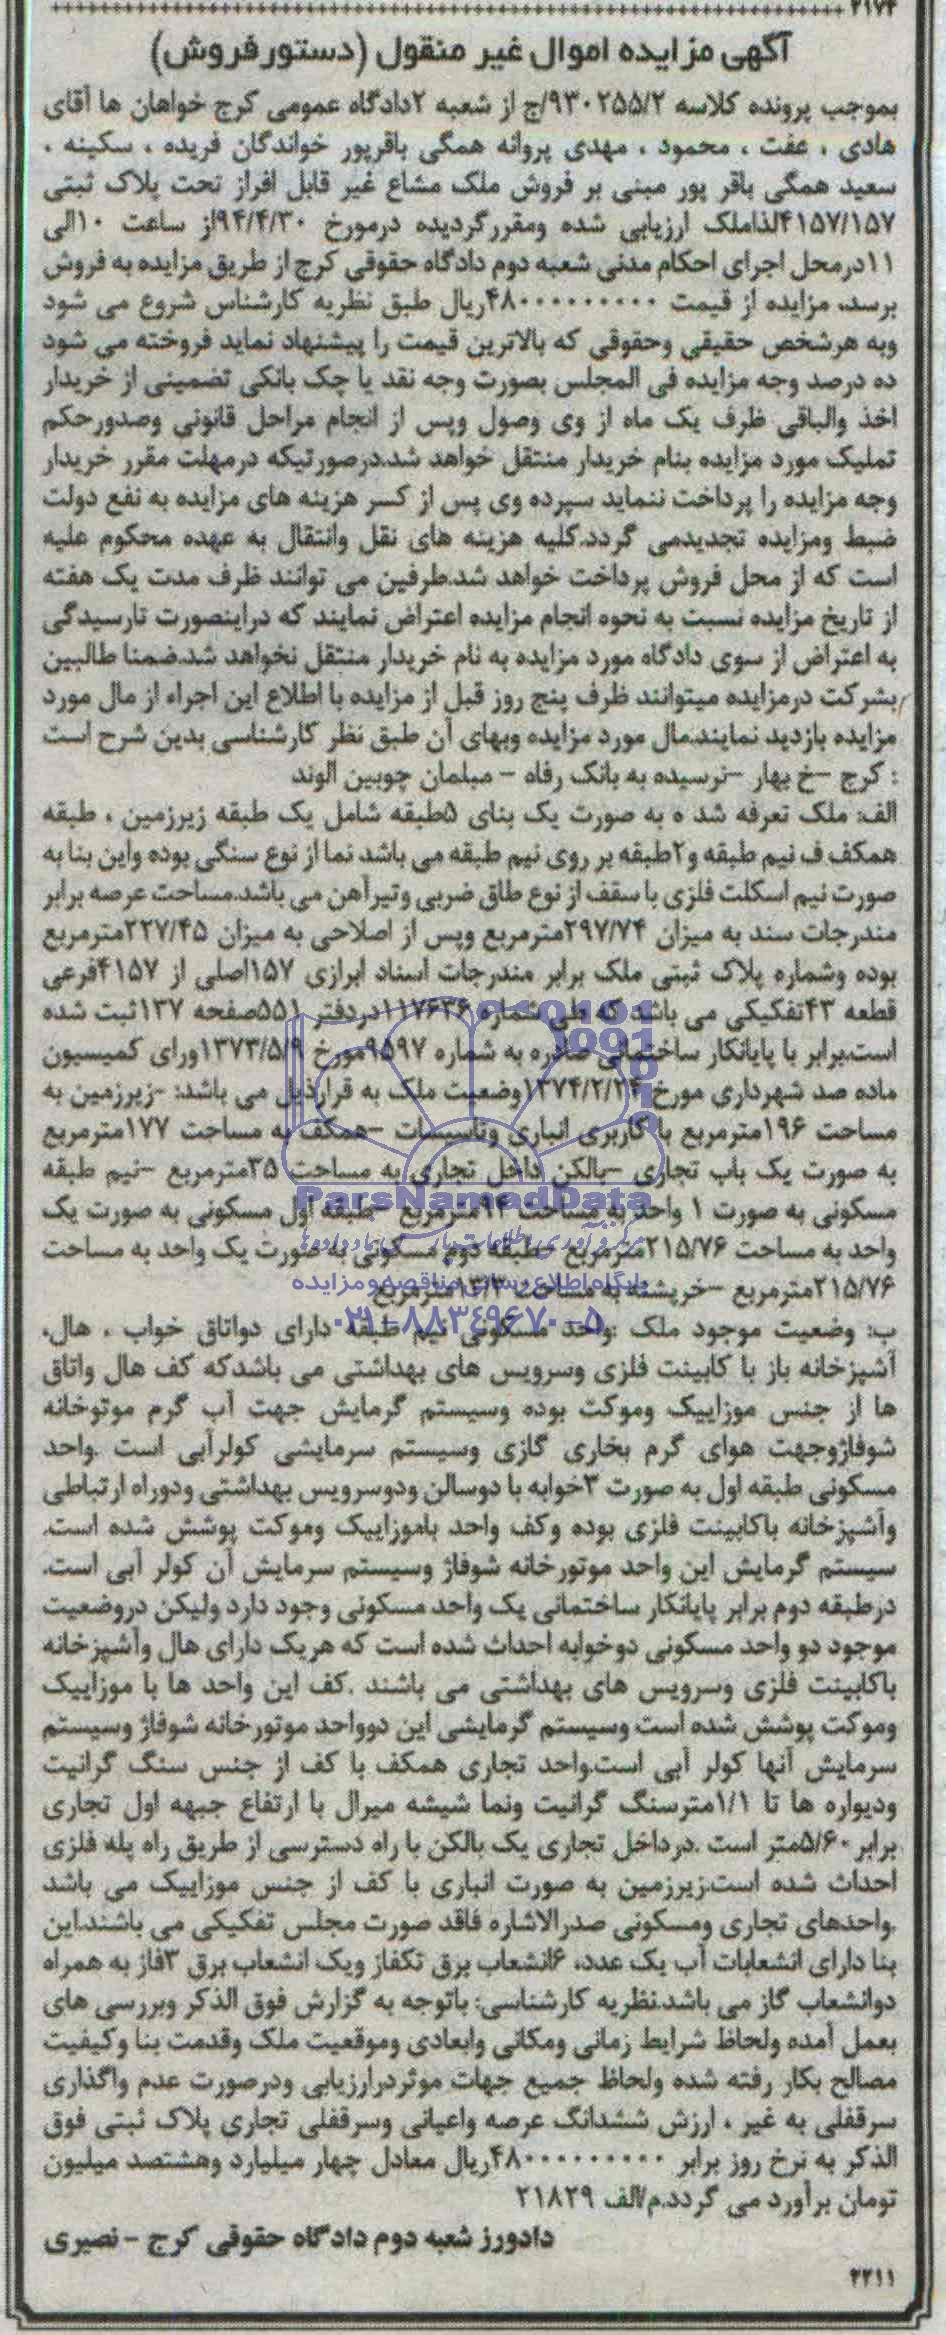 ۲۱۷۴
آگهی مزایده اموال غیر منقول (دستور فروش)
بموجب پرونده کلاسه ۹۳۰۲۵۵/۲/ج از شعبه ۲دادگاه عمومی کرج خواهان ها آقای
هادی ، عفت ، محمود ، مهدی پروانه همگی باقرپور خواندگان فریده ، سکینه ،
سعید همگی باقر پور مبنی بر فروش ملک مشاع غیر قابل افراز تحت پلاک ثبتی
۴۱۵۷/۱۵۷لذاملک ارزیابی شده ومقررگردیده درمورخ ۹۴/۴/۳۰از ساعت ۱۰الی
۱۱درمحل اجرای احکام مدنی شعبه دوم دادگاه حقوقی کرج از طریق مزایده به فروش
برسد، مزایده از قیمت ۴۸۰۰۰۰۰۰۰۰۰ریال طبق نظریه کارشناس شروع می شود
وبه هرشخص حقیقی وحقوقی که بالاترین قیمت را پیشنهاد نماید فروخته می شود
ده درصد وجه مزایده فی المجلس بصورت وجه نقد یا چک بانکی تضمینی از خریدار
اخذ والباقی ظرف یک ماه از وی وصول وپس از انجام مراحل قانونی وصدورحکم
تملیک مورد مزایده بنام خریدار منتقل خواهد شد.درصورتیکه درمهلت مقرر خریدار
وجه مزایده را پرداخت ننماید سپرده وی پس از کسر هزینه های مزایده به نفع دولت
ضبط ومزایده تجدیدمی گردد.کلیه هزینه های نقل وانتقال به عهده محکوم علیه
است که از محل فروش پرداخت خواهد شد.طرفین می توانند ظرف مدت یک هفته
از تاریخ مزایده نسبت به نحوه انجام مزایده اعتراض نمایند که دراینصورت تارسیدگی
به اعتراض از سوی دادگاه مورد مزایده به نام خریدار منتقل نخواهد شد.ضمنا طالبین
بشرکت درمزایده میتوانند ظرف پنج روز قبل از مزایده با اطلاع این اجراء از مال مورد
مزایده بازدید نمایند.مال مورد مزایده وبهای آن طبق نظر کارشناسی بدین شرح است
: کرج –خ بهار –نرسیده به بانک رفاه – مبلمان چوبین الوند
الف: ملک تعرفه شد ه به صورت یک بنای ۵طبقه شامل یک طبقه زیرزمین ، طبقه
همکف ف نیم طبقه و۲طبقه بر روی نیم طبقه می باشد نما از نوع سنگی بوده واین بنا به
صورت نیم اسکلت فلزی با سقف از نوع طاق ضربی وتیرآهن می باشد.مساحت عرصه برابر
مندرجات سند به میزان ۲۹۷/۷۴مترمربع وپس از اصلاحی به میزان ۲۲۷/۴۵مترمربع
بوده وشماره پلاک ثبتی ملک برابر مندرجات اسناد ابرازی ۱۵۷اصلی از ۴۱۵۷فرعی
قطعه ۴۳تفکیکی می باشد که طی شماره ۱۱۷۶۳۶دردفتر ۵۵۱صفحه ۱۳۷ثبت شده
است.برابر با پایانکار ساختمانی صادره به شماره ۹۵۹۷مورخ ۱۳۷۳/۵/۹ورای کمیسیون
ماده صد شهرداری مورخ ۱۳۷۴/۲/۲۴وضعیت ملک به قرارذیل می باشد: -زیرزمین به
مساحت ۱۹۶مترمربع با کاربری انباری وتاسیسات –همکف به مساحت ۱۷۷مترمربع
به صورت یک باب تجاری –بالکن داخل تجاری به مساحت ۳۵مترمربع –نیم طبقه
مسکونی به صورت ۱ واحد به مساحت ۹۴مترمربع –طبقه اول مسکونی به صورت یک
واحد به مساحت ۲۱۵/۷۶مترمربع –طبقه دوم مسکونی به صورت یک واحد به مساحت
۲۱۵/۷۶مترمربع –خرپشته به مساحت ۱۳/۳مترمربع
ب: وضعیت موجود ملک :واحد مسکونی نیم طبقه دارای دواتاق خواب ، هال،
آشپزخانه باز با کابینت فلزی وسرویس های بهداشتی می باشدکه کف هال واتاق
ها از جنس موزاییک وموکت بوده وسیستم گرمایش جهت آب گرم موتوخانه
شوفاژوجهت هوای گرم بخاری گازی وسیستم سرمایشی کولرآبی است .واحد
مسکونی طبقه اول به صورت ۳خوابه با دوسالن ودوسرویس بهداشتی ودوراه ارتباطی
وآشپزخانه باکابینت فلزی بوده وکف واحد باموزاییک وموکت پوشش شده است.
سیستم گرمایش این واحد موتورخانه شوفاژ وسیستم سرمایش آن کولر آبی است.
درطبقه دوم برابر پایانکار ساختمانی یک واحد مسکونی وجود دارد ولیکن دروضعیت
موجود دو واحد مسکونی دوخوابه احداث شده است که هریک دارای هال وآشپزخانه
باکابینت فلزی وسرویس های بهداشتی می باشند .کف این واحد ها با موزاییک
وموکت پوشش شده است وسیستم گرمایشی این دوواحد موتورخانه شوفاژ وسیستم
سرمایش آنها کولر آبی است.واحد تجاری همکف با کف از جنس سنگ گرانیت
ودیواره ها تا ۱/۱مترسنگ گرانیت ونما شیشه میرال با ارتفاع جبهه اول تجاری
برابر ۵/۶۰متر است .درداخل تجاری یک بالکن با راه دسترسی از طریق راه پله فلزی
احداث شده است.زیرزمین به صورت انباری با کف از جنس موزاییک می باشد
.واحدهای تجاری ومسکونی صدرالاشاره فاقد صورت مجلس تفکیکی می باشند.این
بنا دارای انشعابات آب یک عدد، ۶انشعاب برق تکفاز ویک انشعاب برق ۳فاز به همراه
دوانشعاب گاز می باشد.نظریه کارشناسی: باتوجه به گزارش فوق الذکر وبررسی های
بعمل آمده ولحاظ شرایط زمانی ومکانی وابعادی وموقعیت ملک وقدمت بنا وکیفیت
مصالح بکار رفته شده ولحاظ جمیع جهات موثردرارزیابی ودرصورت عدم واگذاری
سرقفلی به غیر ، ارزش ششدانگ عرصه واعیانی وسرقفلی تجاری پلاک ثبتی فوق
الذکر به نرخ روز برابر ۴۸۰۰۰۰۰۰۰۰۰ریال معادل چهار میلیارد وهشتصد میلیون
تومان برآورد می گردد.م/الف ۲۱۸۲۹
دادورز شعبه دوم دادگاه حقوقی کرج – نصیری
۲۲۱۱
ParsNamadData
پایگاه اطلاع رسانی مناقصه و مزایده
۰۲۱-۸۸۳۴۹۶۷۰-۵